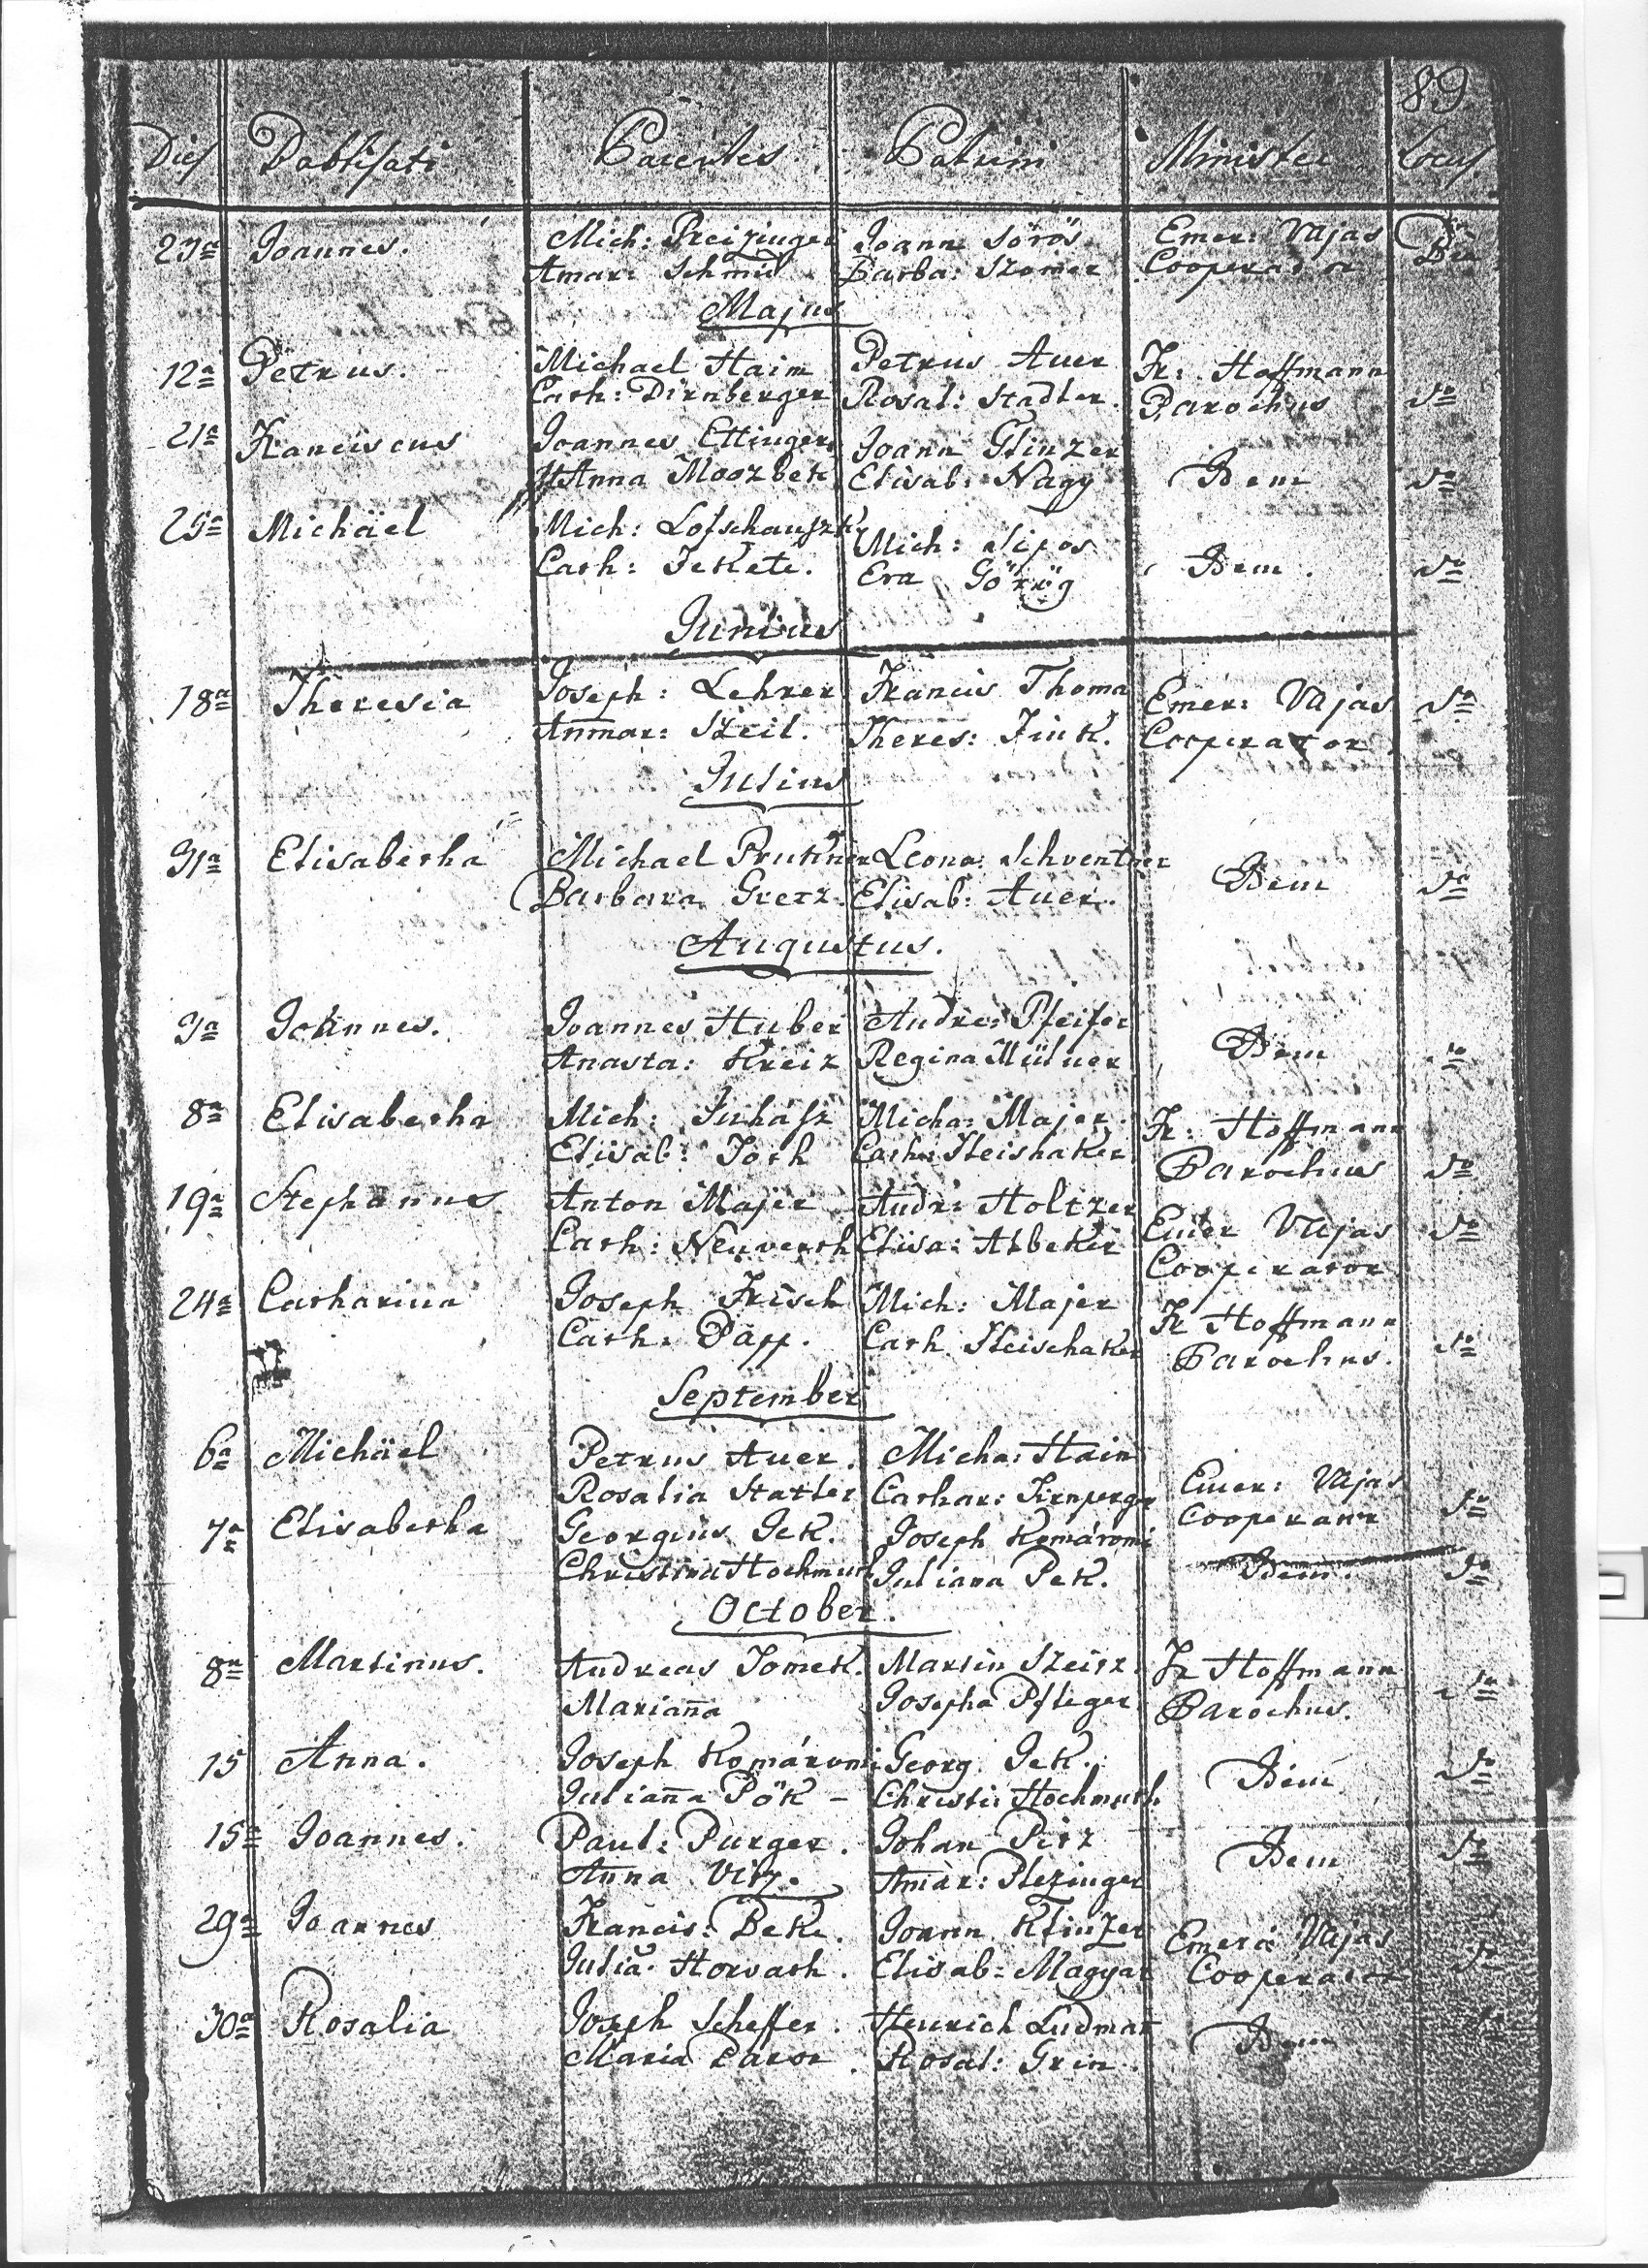 89
Dies Babtisati Parentes Patrini Minister Locus
23a Joannes. Mich: Preizinger Joann Sörös Emer: Vajas
Amar: Schmid Barba: Szomer Cooperator
Majus
12a Petrus. Michael Haim Petrus Auer Fr: Hoffmann
Cath: Dirnberger Rosal: Stadler. Parochus do
21a Franciscus Joannes Ettinger Joann Glinzer
Anna Moozbek Elisab: Nagy Idem do
25a Michäel Mich: Mich: Sipos
Cath: Fekete. Eva Görög Idem. do
Junius
18a Theresia Joseph: Lehrer Francis Thoma Emer: Vajas do
Anmar: Szeil. Theres: Fink. Cooperator.
Julius
31a Elisabetha Michael Prukner Leona: Schventner
Barbara Gretz. Elisab: Auer. Idem do
Augustus.
3a Joannes. Joannes Huber Andre: Pfeifer
Anasta: Kreiz Regina Mülner Idem do
8a Elisabetha Mich: Juhász Micha: Majer. Fr: Hoffmann
Elisab: Toth Cath: Fleishaker Parochus do
19a Stephanus Anton Majer Andr: Holtzer Emer Vajas do
Cath: Neuverth Elisa: Albeker Cooperator
24a Catharina Joseph Frisch Mich: Majer Fr Hoffmann
Cath: Papp. Cath Fleischaker Parochus. do
September
6a Michäel Petrus Auer. Micha: Haim Emer: Vajas
Rosalia Statler Cathar: Cooperator do
7a Elisabetha Georgius Jek. Joseph Komáromi
Christina Hochmuth Juliana Pek. Idem. do
October.
8a Martinus. Andreas Tomek. Martin Szeitz Fr Hoffmann
Marianna Josepha Pfleger Parochus. do
15 Anna. Joseph Komáromi Georg Jek.
Julianna Pök – Christi: Hochmuth Idem do
15a Joannes. Paul: Purger. Johan Pitz
Anna Vitz. Amar: Plezinger Idem do
29a Joannes Francis: Beke. Joann Klinzer Emeri Vajas
Julia: Horvath. Elisab: Magyar Cooperator do
30a Rosalia Joseph Scheffer. Henrich Ludmar Idem
Maria Paror. Rosal: Grin.